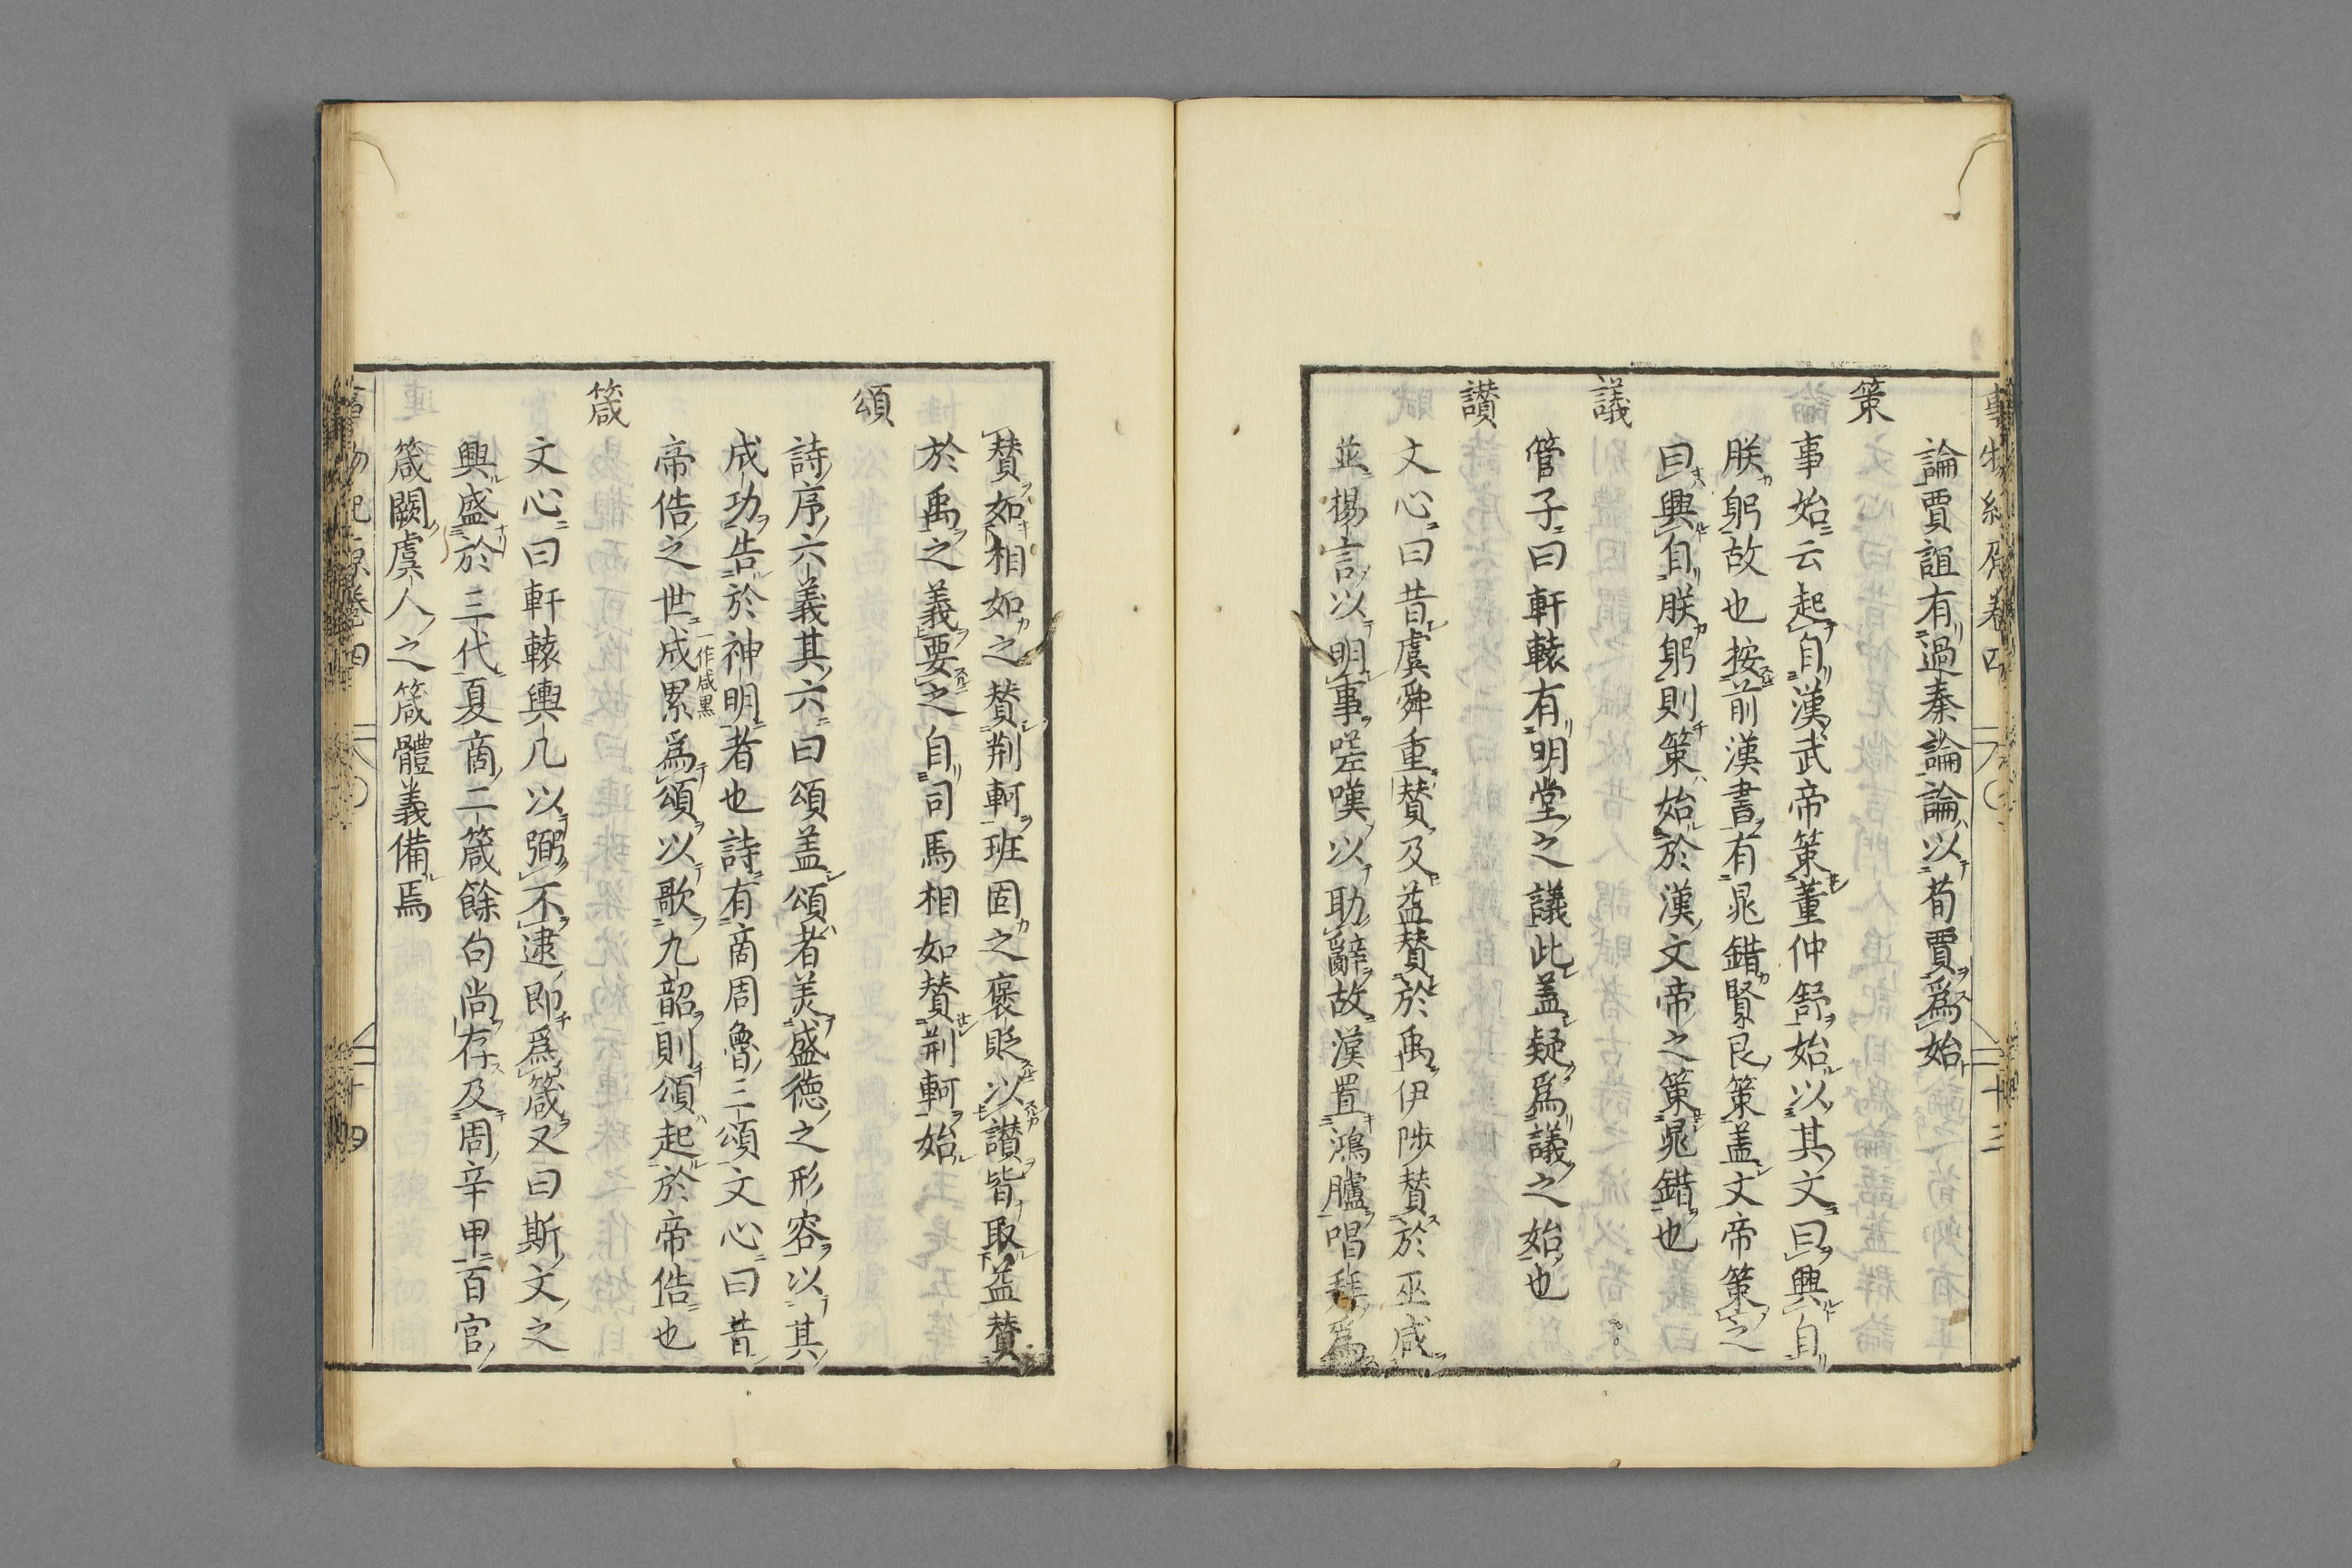 論賈誼有過秦論論以荀賈爲始
策
事始云起自漢武帝策董仲舒始以其文曰興自
朕躬故也按前漢書有晁錯賢良策盖文帝策之
曰興自朕躬則策始於漢文帝之策晁錯也
議
管子曰軒轅有明堂之議此盖疑爲議之始也
讃
文心曰昔虞舜重賛及益賛於禹伊陟賛於巫咸
並揚言以明事嗟嘆以助辭故漢置鴻臚唱拜爲
賛如相如之賛荆軻班固之褒貶以讃皆取益賛
於禹之義要之自司馬相如賛荆軻始
頌
詩序六義其六曰頌盖頌者美盛徳之形容以其
成功告於神明者也詩有商周魯三頌文心曰昔
帝俈之世成累一作咸黒爲頌以歌九韶則頌起於帝俈也
箴
文心曰軒轅輿几以弼不逮即爲箴又曰斯文之
興盛於三代夏商二箴餘句尚存及周辛甲百官
箴闕虞人之箴體義備焉